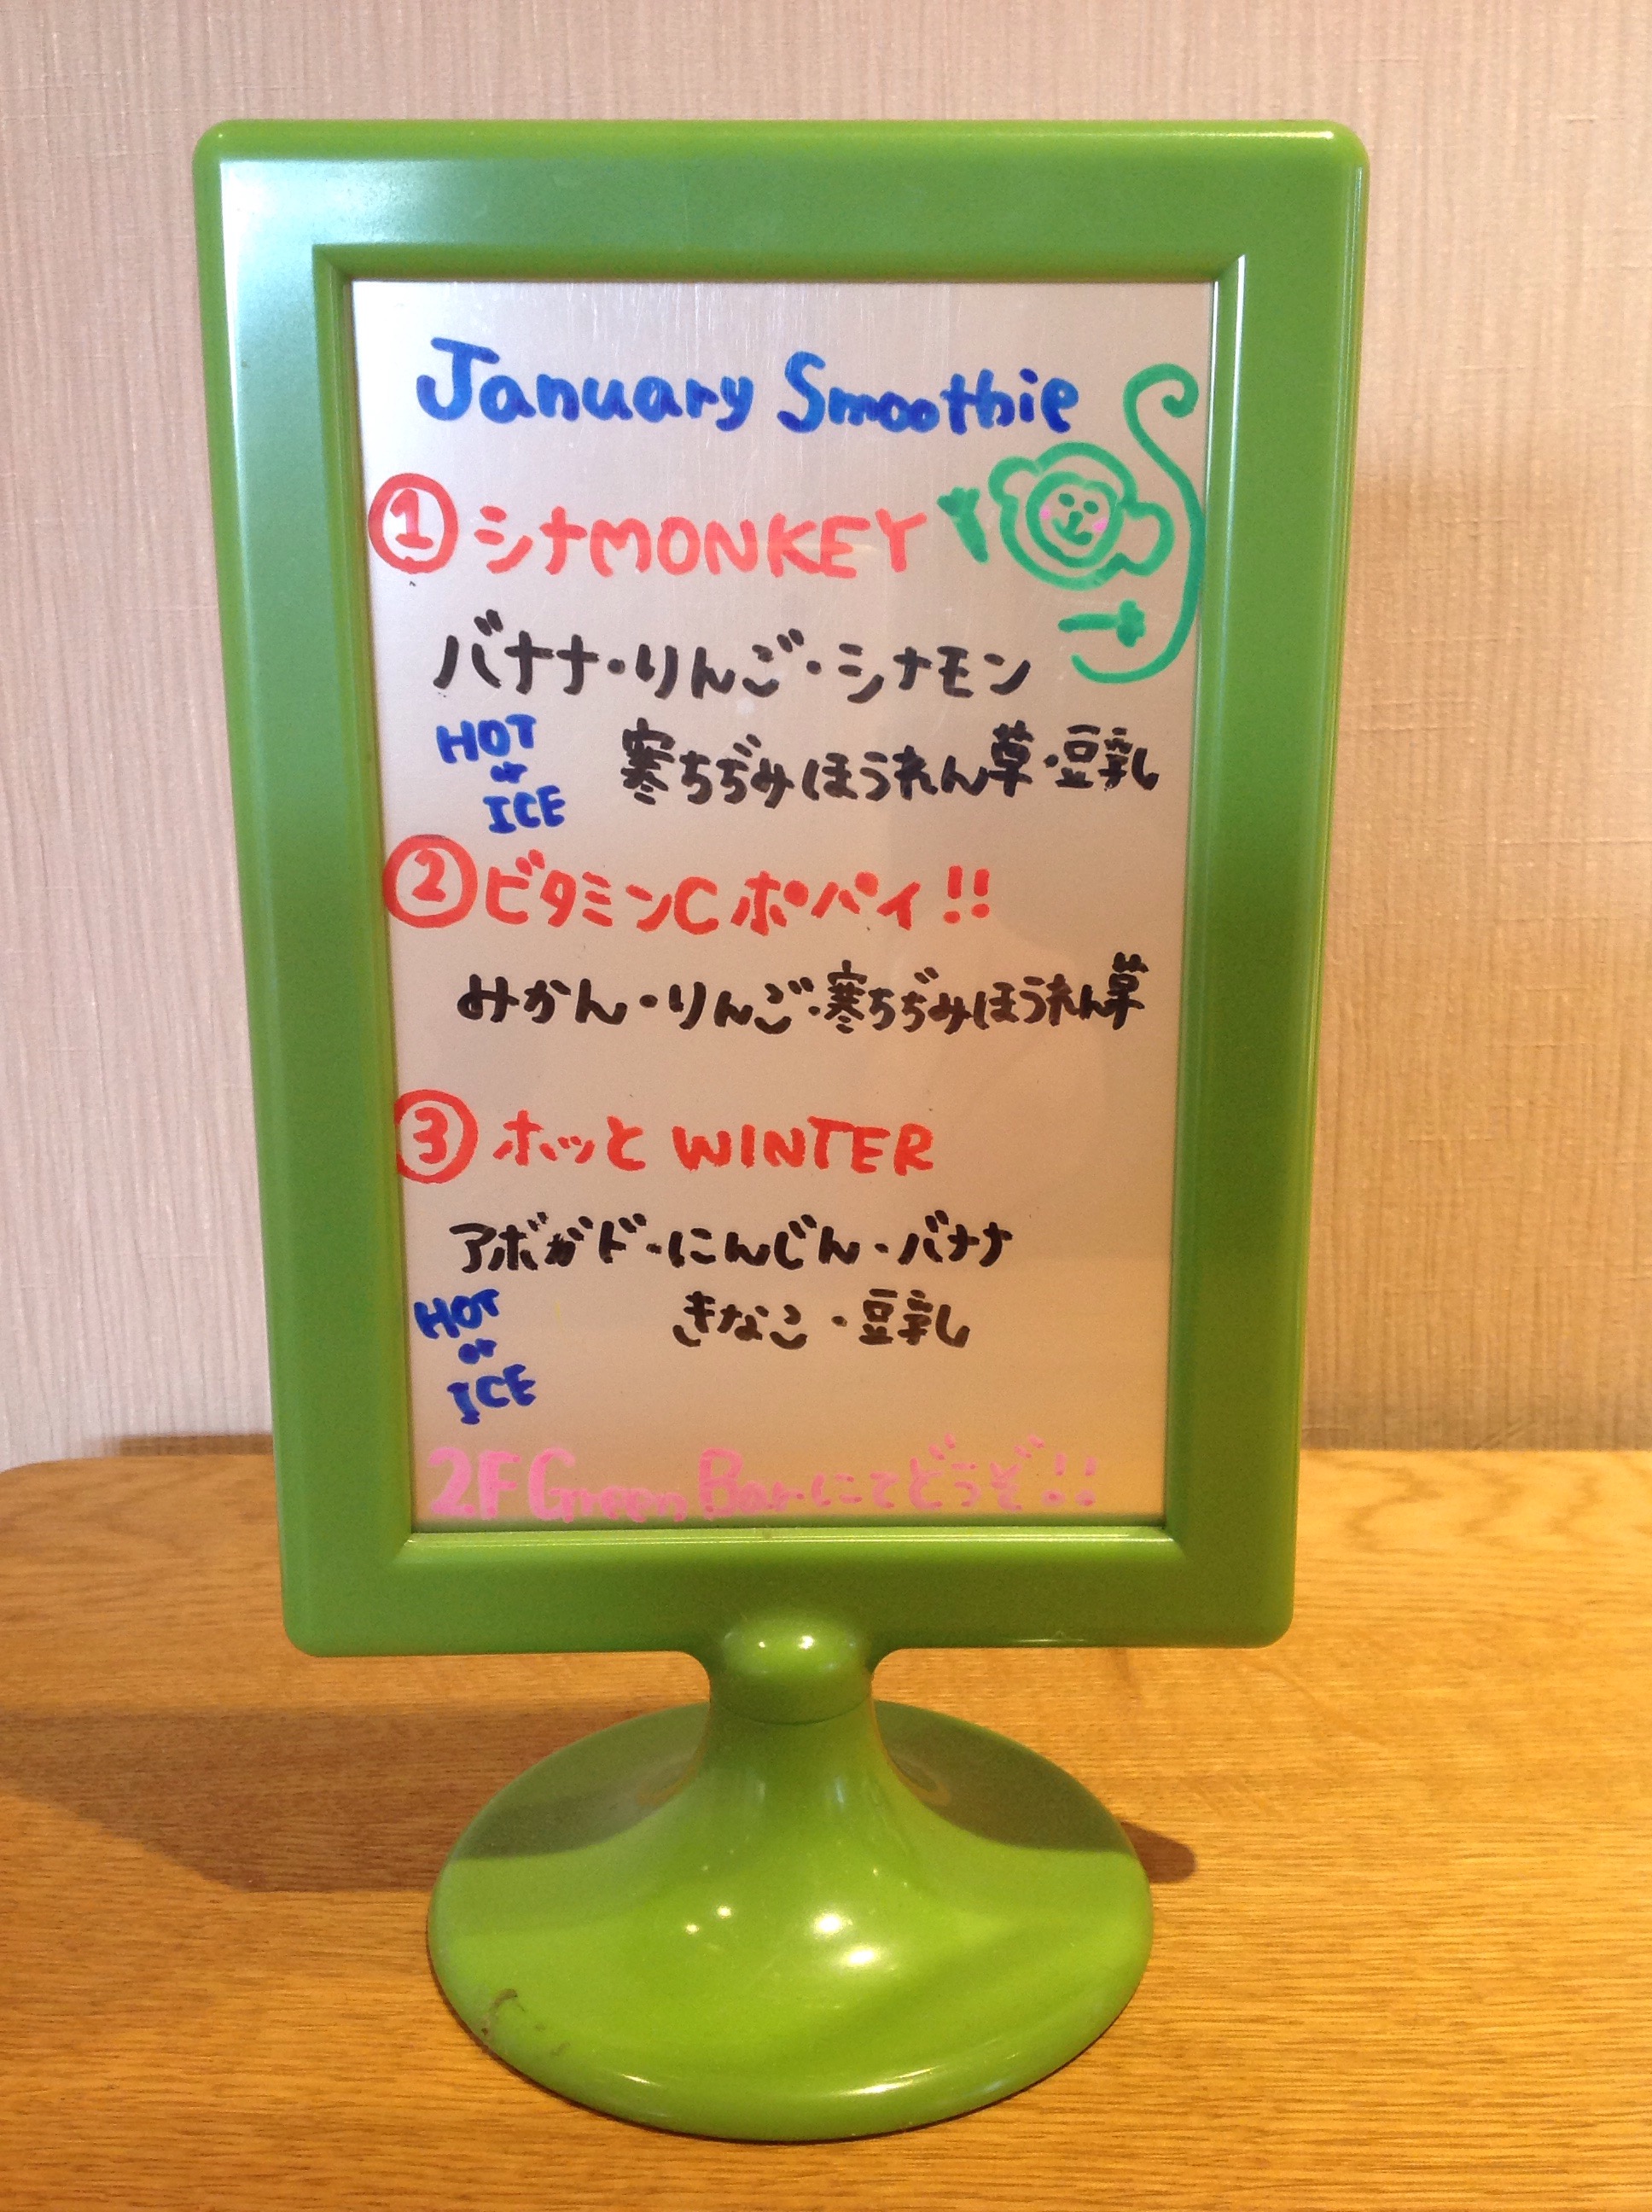 January Smoothie
① シナMONKEY
バナナ・りんご・シナモン
HOT
or
ICE
寒ちぢみほうれん草・豆乳
② ビタミンC ポパイ!!
みかん・りんご・寒ちぢみほうれん草
③ ホッと WINTER
アボガド・にんじん・バナナ
きなこ・豆乳
HOT
or
ICE
2F Green Barにてどうぞ!!